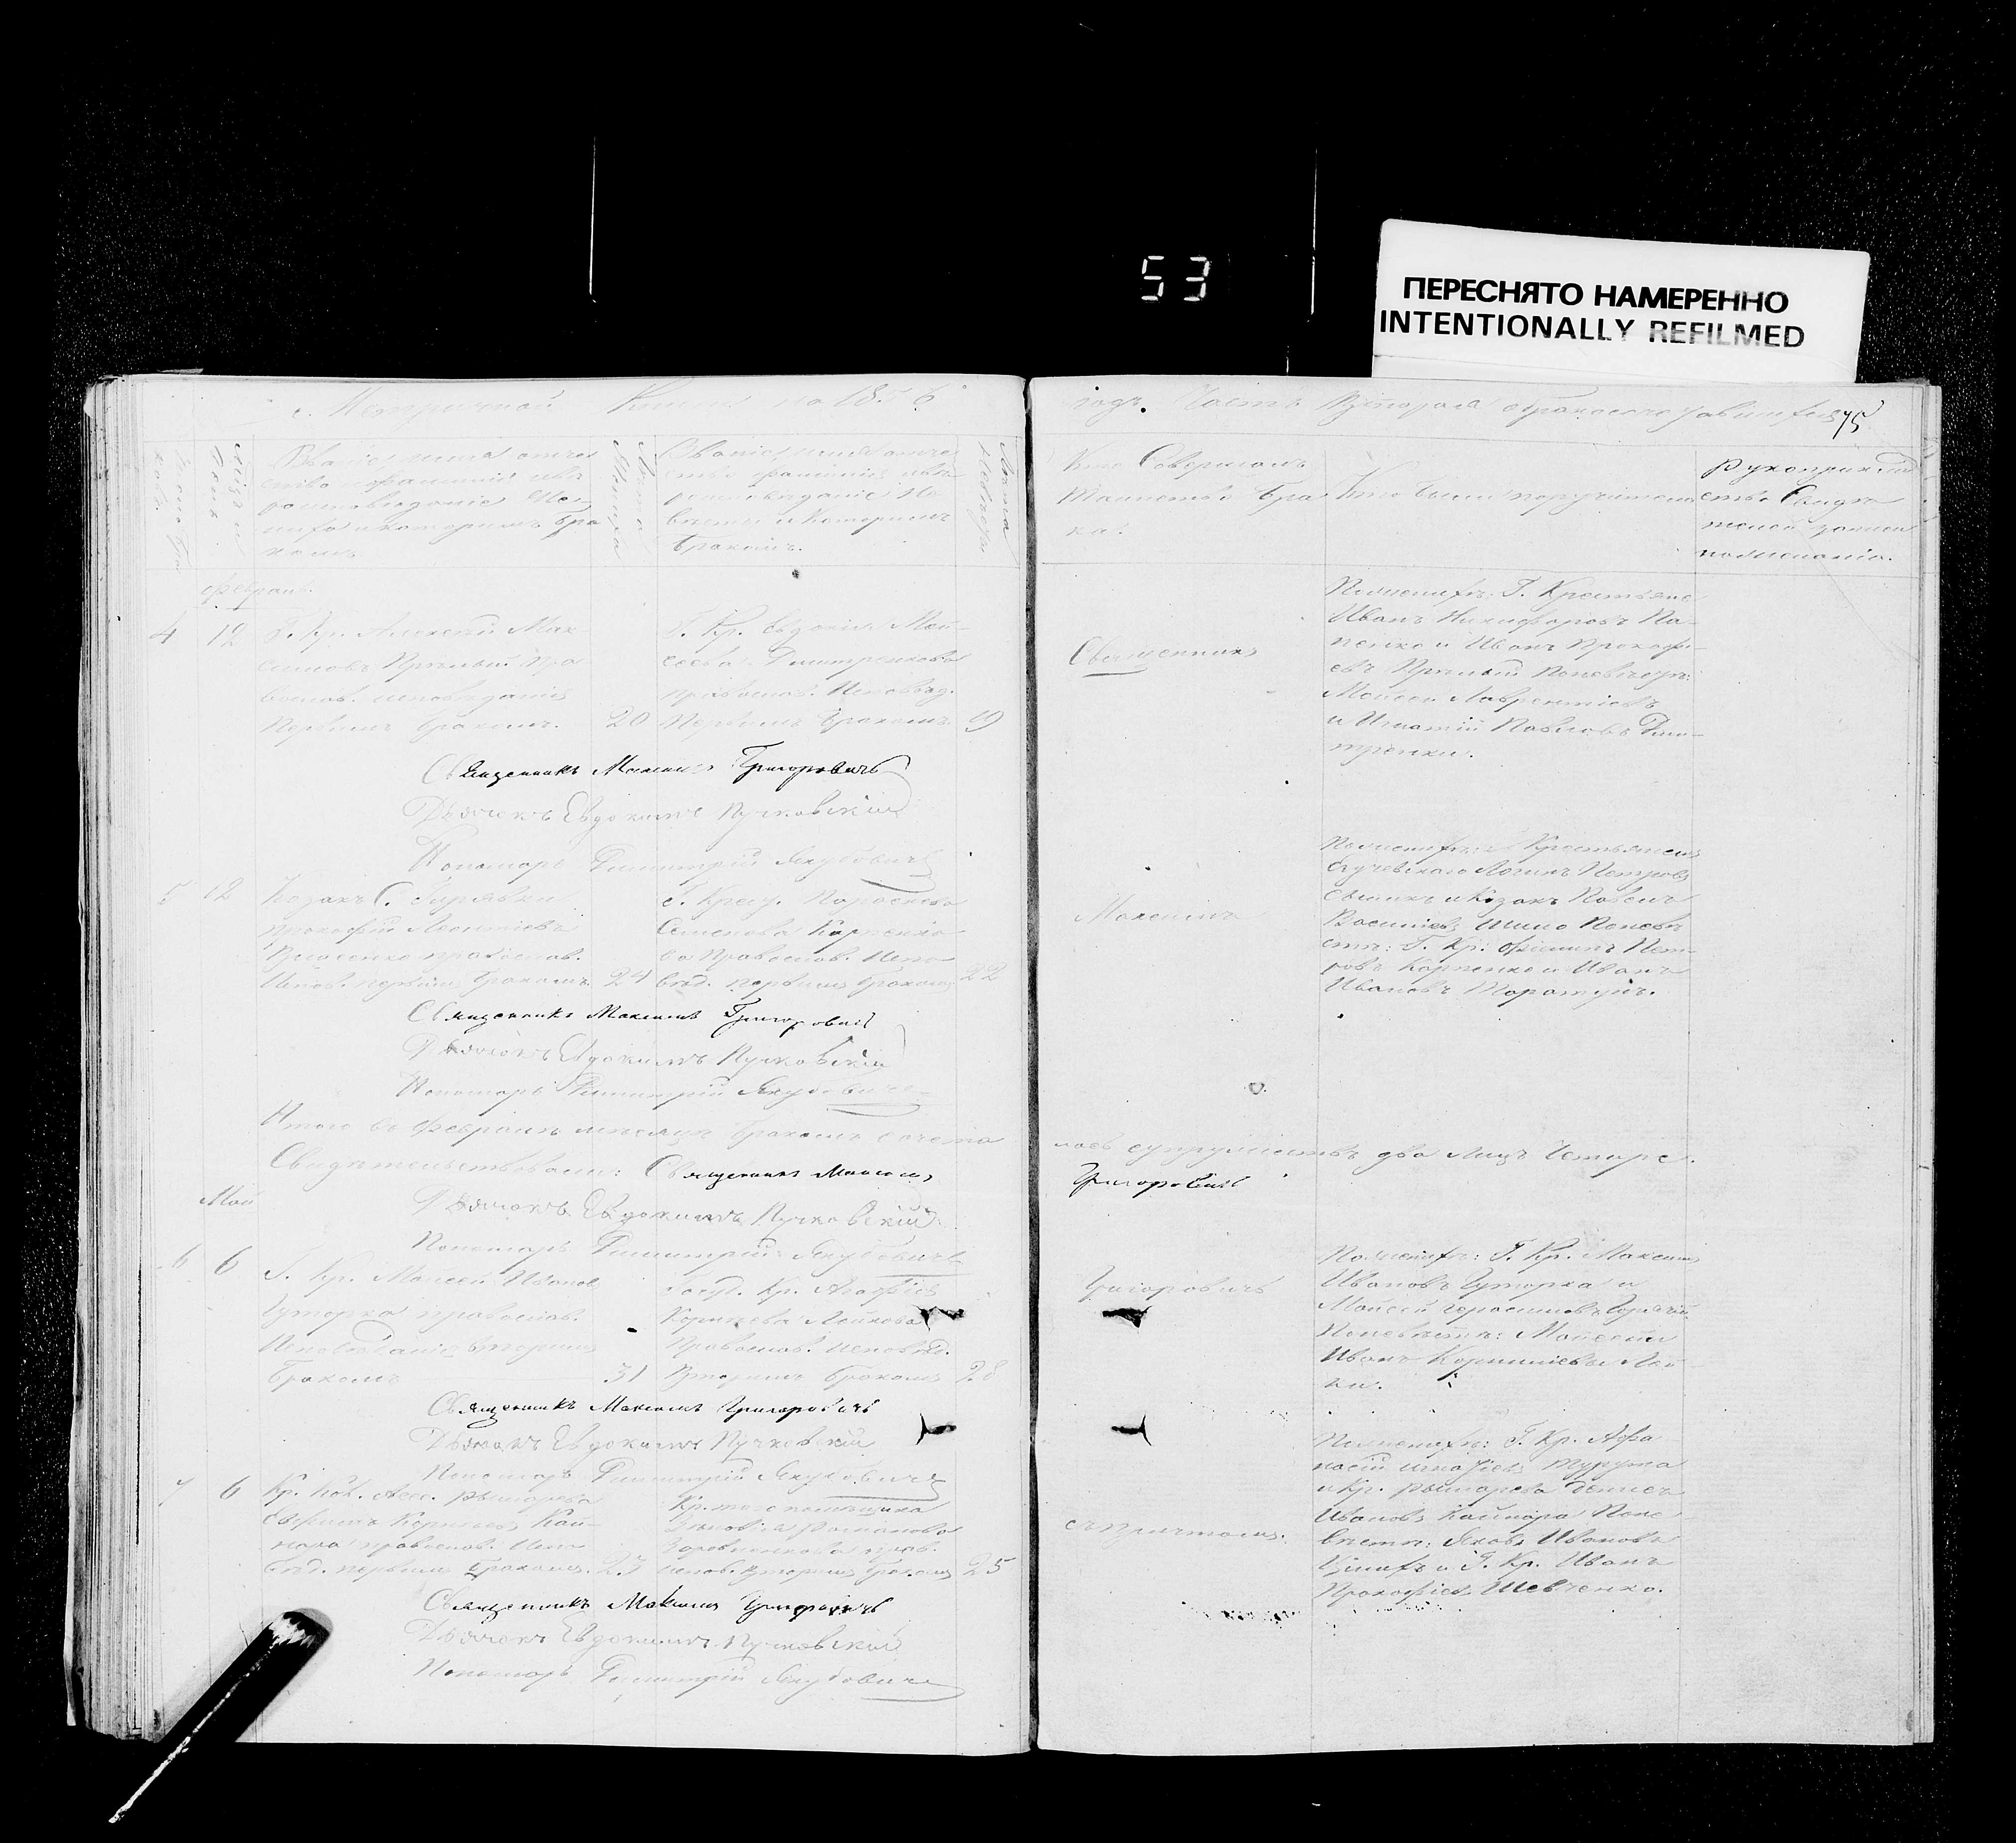 53
ПЕРЕСНЯТО НАМЕРЕННО
INTENTIONALLY REFILMED
Метричной Книги на 1856
годъ. Часть Вторая о бракосочетавшихся
75
Званіе, имя, отче
ство и фамилія
Лѣта Жениха
Званіе, имя, отче
ство фамилія
Лѣта Невѣсты
Кто Совершалъ
Таинство Бра
ка.
Кто были поручители
Рукоприклад
ство Свидѣ
телей записи
по желанію.
Февраль
4 12 Г. Кр. Алексѣй Мак
симовъ пра
вослав. исповѣданія
Первымъ бракомъ. 20
Г. Кр. Евдокія Мой
сеева Димитренкова
православ. Исповѣд.
Первымъ бракомъ 19
Священникъ
По женихѣ: Г. Крестьяне
Иванъ Никифоровъ Па
ненко и Иванъ Прокофі
евъ По невѣстѣ:
Мойсей Лаврентіевъ
и Игнатій Павловъ Дми
тренки.
Священникъ Максимъ Григоровичъ
Дьячокъ Евдокимъ Пучковскій
Пономарь Димитрій Якубовичъ
5 12 Козакъ С.
Прокофій Леонтіевъ
православ.
Испов. первымъ бракомъ. 24
Г. Крест. Параскева
Семенова Карпенко
ва Православ. Испо
вѣд. первымъ бракомъ 22
Максимъ
По женихѣ: Крестьянинъ
Логинъ Петровъ
и Козакъ Павелъ
Васильевъ Шило По невѣ
стѣ: Г. Кр. Филипъ Пет
ровъ Карпенко и Иванъ
Ивановъ Таратунъ.
Священникъ Максимъ Григоровичъ
Дьячокъ Евдокимъ Пучковскій
Пономарь Димитрій Якубовичъ
Итого въ Февралѣ мѣсяцѣ бракомъ сочета
лось супружествъ два лицъ Четыре.
Свидѣтельствовали: Священникъ Максимъ
Григоровичъ
Май
Дьячокъ Евдокимъ Пучковскій
Пономарь Димитрій Якубовичъ
6 6 Г. Кр. Мойсей Ивановъ
Цуторка православ.
Исповѣданія вторымъ
бракомъ 31
Госуд. Кр. Агафія
Корніева Лейкова
Православ. исповѣд.
Вторымъ бракомъ 28
Григоровичъ
По женихѣ: Г. Кр. Максимъ
Ивановъ Цуторка и
Мойсей Герасимовъ
По невѣстѣ: Мойсей и
Иванъ Корниліевы Лей
ки.
Священникъ Максимъ Григоровичъ
Дьячокъ Евдокимъ Пучковскій
Пономарь Димитрій Якубовичъ
7 6 Кр. Кол. Асес. Рымарева
Ефимъ Корніевъ Кай
нара православ. Испо
вѣд. первымъ бракомъ. 23
Кр. того помѣщика
Зѣновія Романова
прав.
испов. вторымъ бракомъ 25
съ причтомъ.
По женихѣ: Г. Кр. Афа
насій Игнатіевъ Турута
и Кр. Рымарева Денисъ
Ивановъ Кайнара По не
вѣстѣ: Яковъ Ивановъ
и Г. Кр. Иванъ
Прокофіевъ Шевченко.
Священникъ Максимъ Григоровичъ
Дьячокъ Евдокимъ Пучковскій
Пономарь Димитрій Якубовичъ